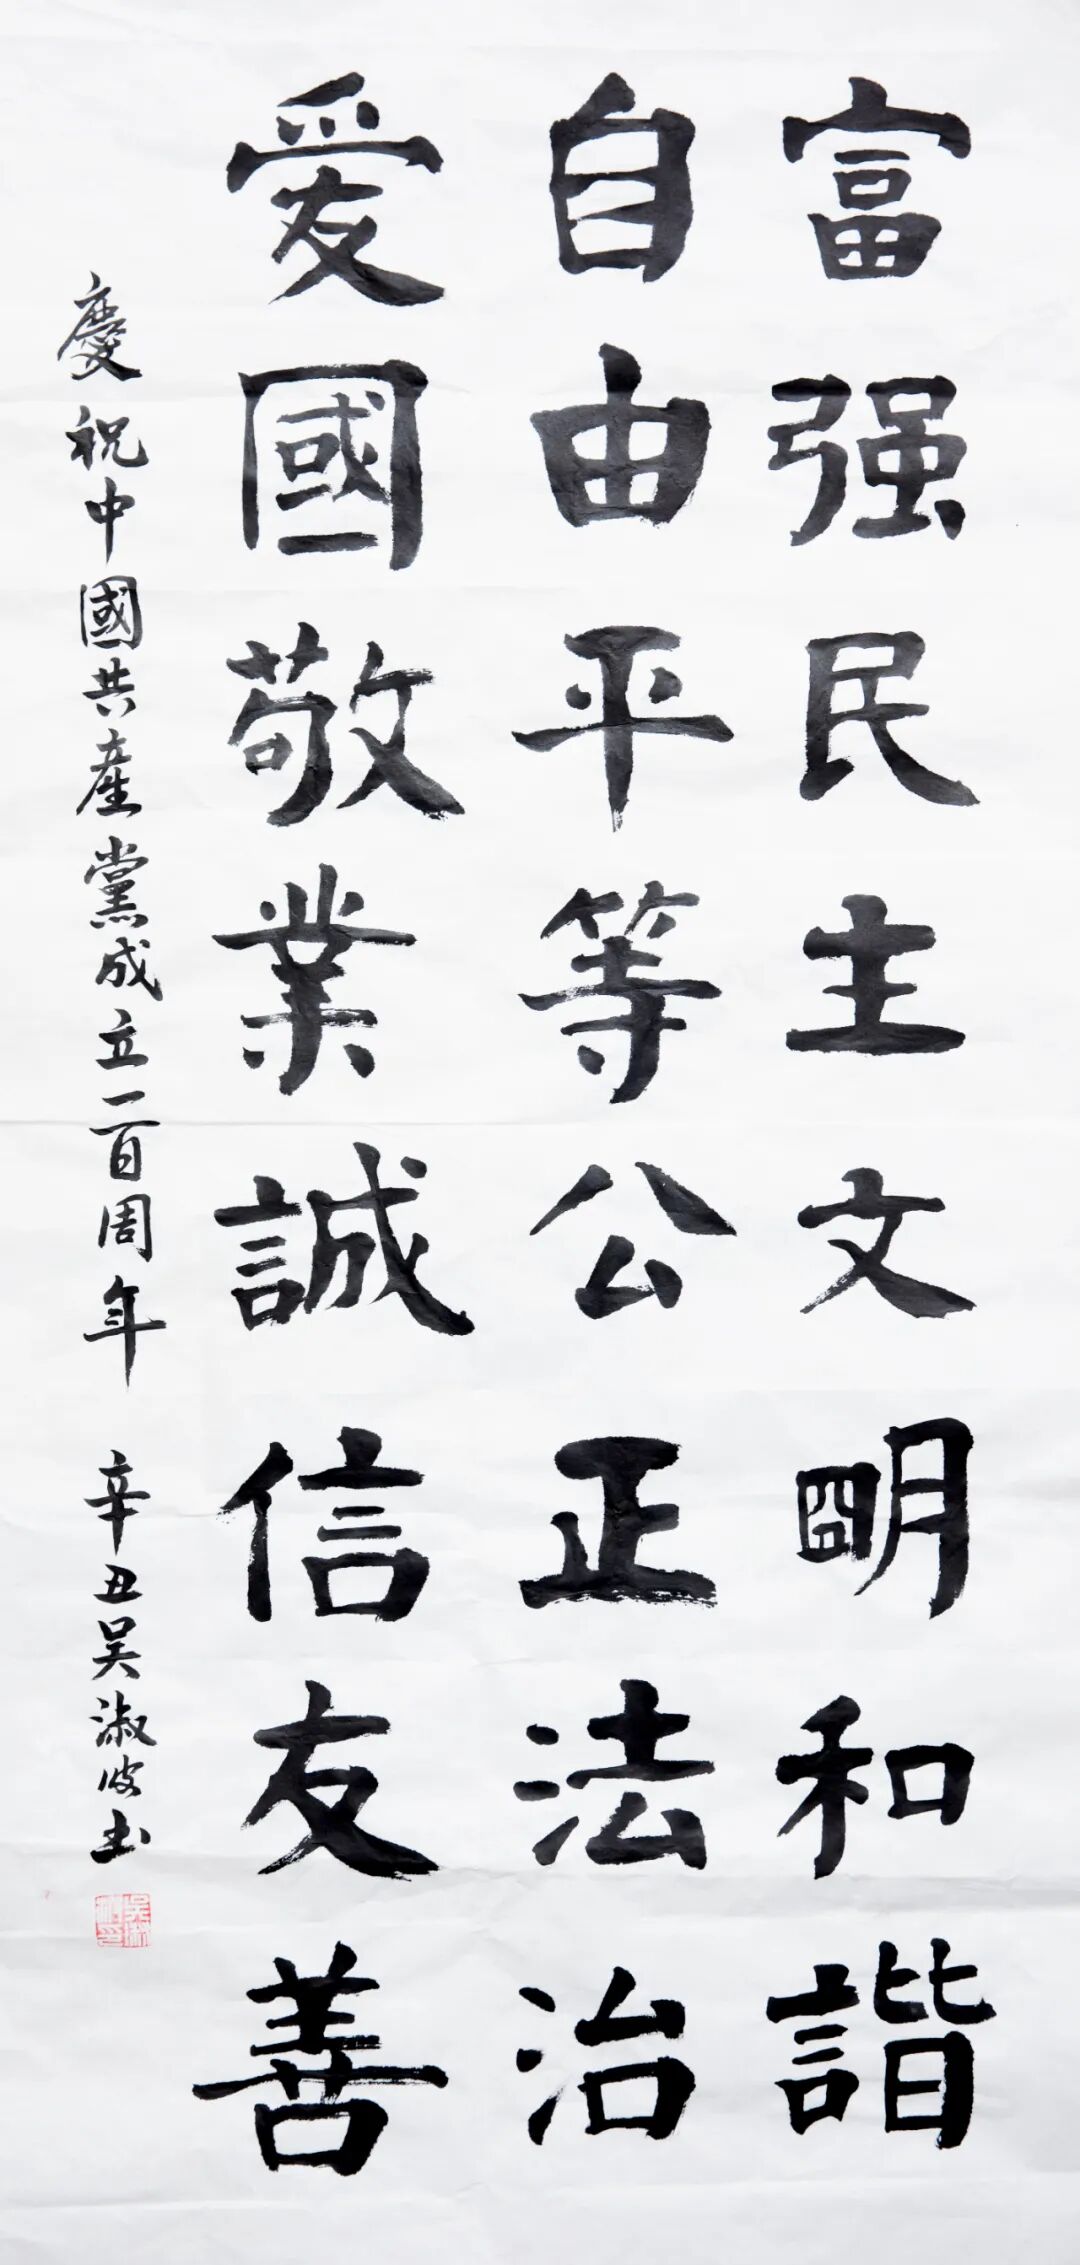 富强民主文明和諧
自由平等公正法治
愛國敬業誠信友善
慶祝中國共產黨成立一百周年 辛丑吴淑波书